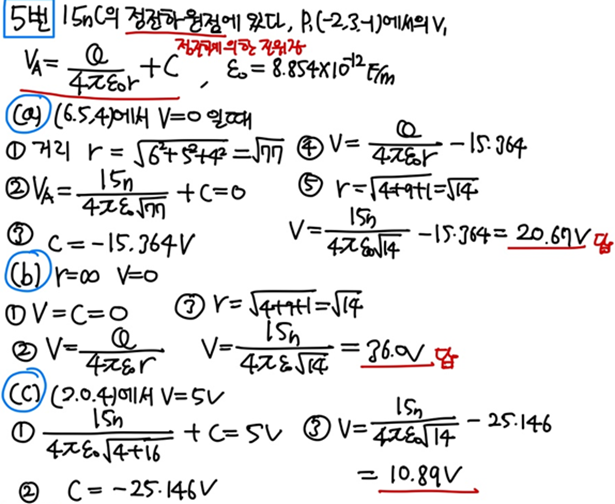 5번 15nC의 점전하 원점에 있다, P₁(-2,3,-1)에서의 V₁
점전하에 의한 전위장
V_A = Q/(4πε₀r) + C , ε₀ = 8.854×10⁻¹² F/m
(a) (6.5.4)에서 V=0 일때
① 거리 r = √(6²+5²+4²) = √77
② V_A = 15n/(4πε₀√77) + C = 0
③ C = -15.364V
④ V = Q/(4πε₀r) - 15.364
⑤ r = √(4+9+1) = √14
V = 15n/(4πε₀√14) - 15.364 = 20.67V 답
(b) r=∞ V=0
① V = C = 0
② V = Q/(4πε₀r)
③ r = √(4+9+1) = √14
V = 15n/(4πε√14) = 36.0V 답
(C) (2.0.4)에서 V=5V
① 15n/(4πε₀√(4+16)) + C = 5V
② C = -25.146V
③ V = 15n/(4πε₀√14) - 25.146
= 10.89V